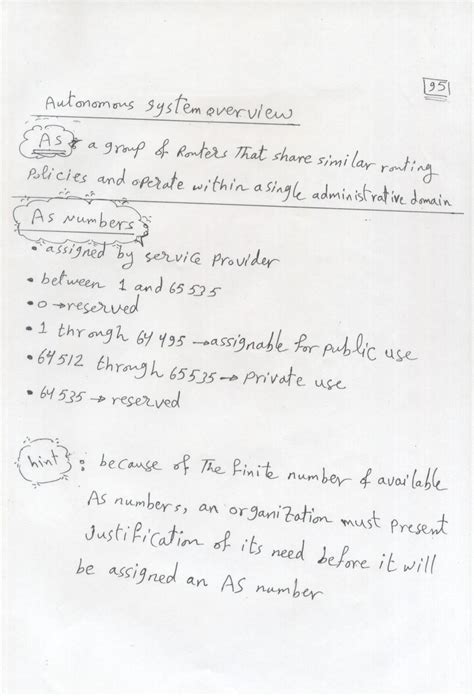 95
Autonomous system overview
AS : a group of Routers That share similar routing
Policies and operate within a single administrative domain
AS Numbers :
• assigned by service Provider
• between 1 and 65535
• 0 → reserved
• 1 through 64495 → assignable for public use
• 64512 through 65535 → Private use
• 64535 → reserved
hint : because of The finite number of available
AS numbers, an organization must present
Justification of its need before it will
be assigned an AS number